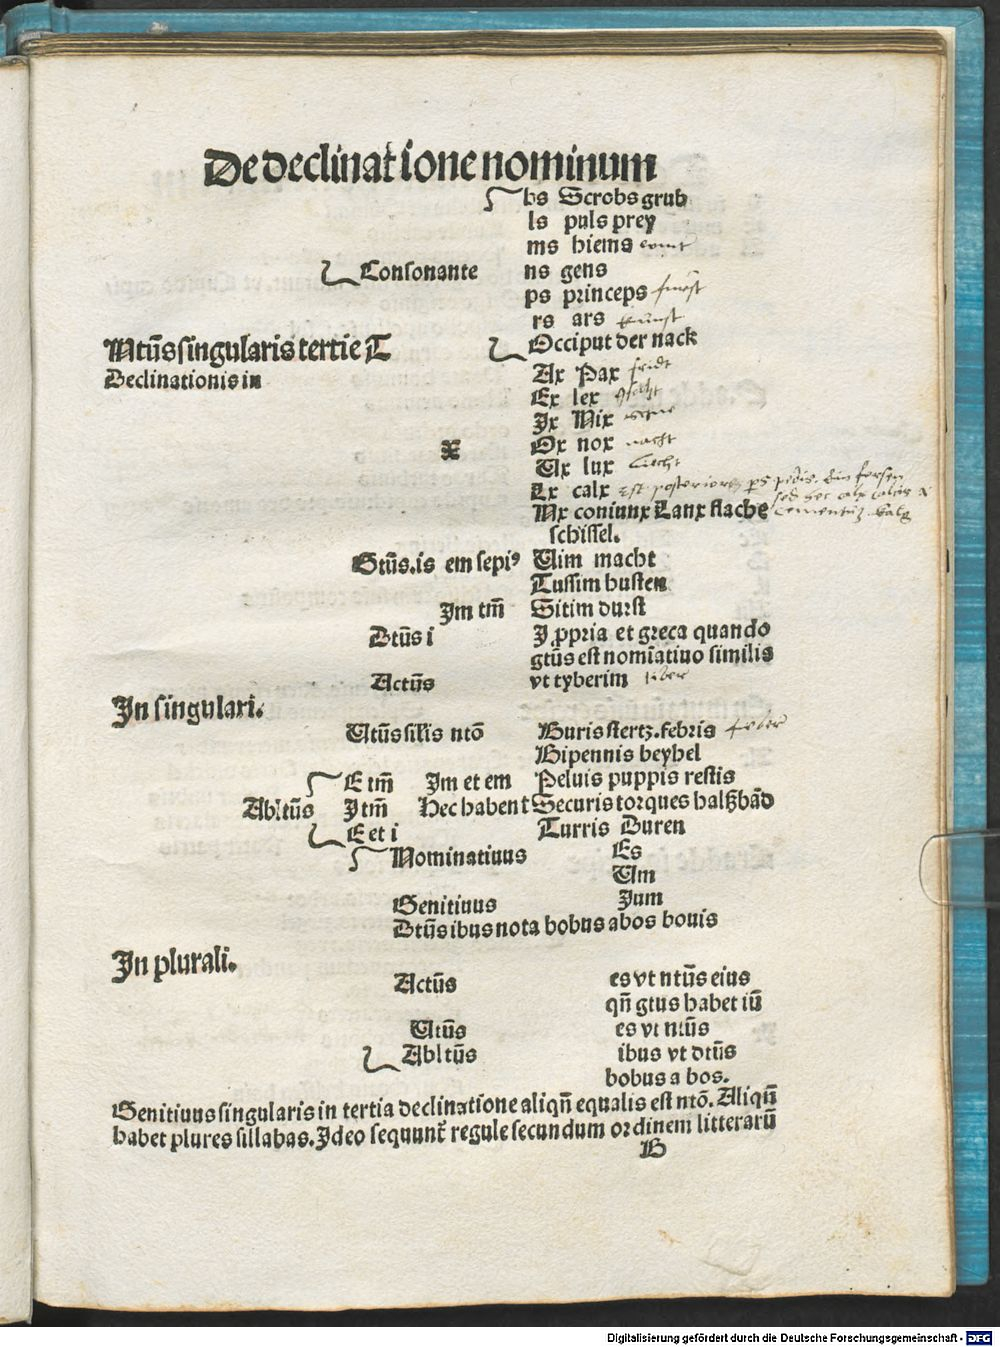 De declinatione nominum
bs Scrobs grub
ls puls prey
ms hiems
Consonante ns gens
ps princeps fürst
rs ars kunst
Ntūs singularis tertie T Occiput der nack
Declinationis in
Ax Pax fridt
Ex lex
Ix Nix
X Ox nox nacht
Ux lux Liecht
Lx calx est posterior pars pedis
Nx coniunx Lanx flache
schissel.
Gtūs.is em sepiꝰ Uim macht
Tussim husten
Im tm̄ Sitim durst
Dtūs i I ꝓpria et greca quando
gtūs est nomīatiuo similis
Actūs vt tyberim tiber
In singulari.
Utūs silis ntō Buris stertz.febris feber
Bipennis beyhel
E tm̄ Im et em Peluis puppis restis
Abltūs I tm̄ Hec habent Securis torques halßbād
E et i Turris Duren
Nominatiuus Es
Um
Genitiuus Ium
Dtūs ibus nota bobus a bos bouis
In plurali.
Actūs es vt ntūs eius
qn̄ gtus habet iū
Utūs es vt ntūs
Abltūs ibus vt dtūs
bobus a bos.
Genitiuus singularis in tertia declinatione aliqn̄ equalis est ntō. Aliqn̄
habet plures sillabas. Ideo sequunt̄ regule secundum ordinem litterarū
B
Digitalisierung gefördert durch die Deutsche Forschungsgemeinschaft - DFG